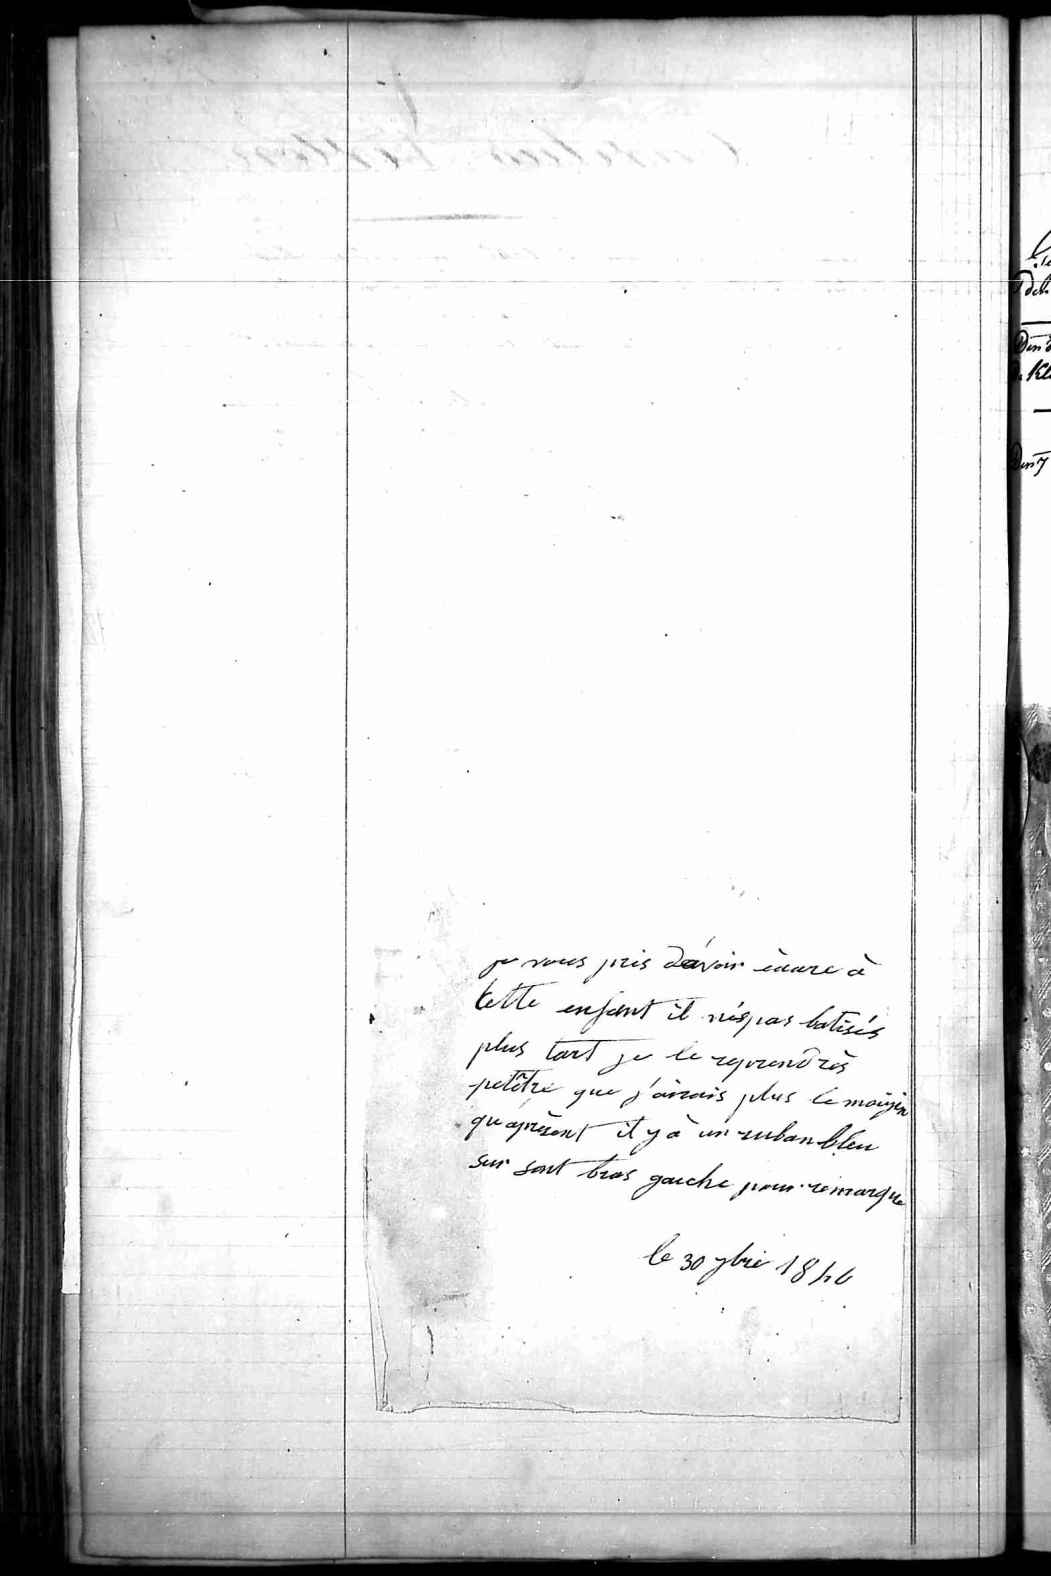 je vous pris davoir èaure à
cette enfant il néspas batisés
plus tart je le reprendrès
petêtre que j'aurais plus le moiyin
quaprèsent il y à un ruban bleu
sur sont bras gauche pour remarque
le 30 ybre 1846